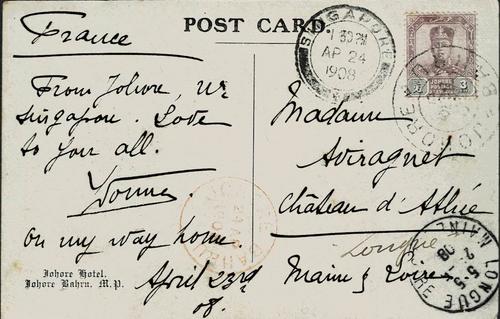 POST CARD
France
From Johore, nr
Singapore. Love
to you all.
Yonne
On my way home.
April 23rd
08.
Johore Hotel.
Johore Bahru. M.P.
SINGAPORE
1 30 PM
AP 24
1908
JOHORE
3
Madame
Aviragnet
Château d'Athié
Longué
Maine & Loire
LONGUÉ
5-5
08
MAINE